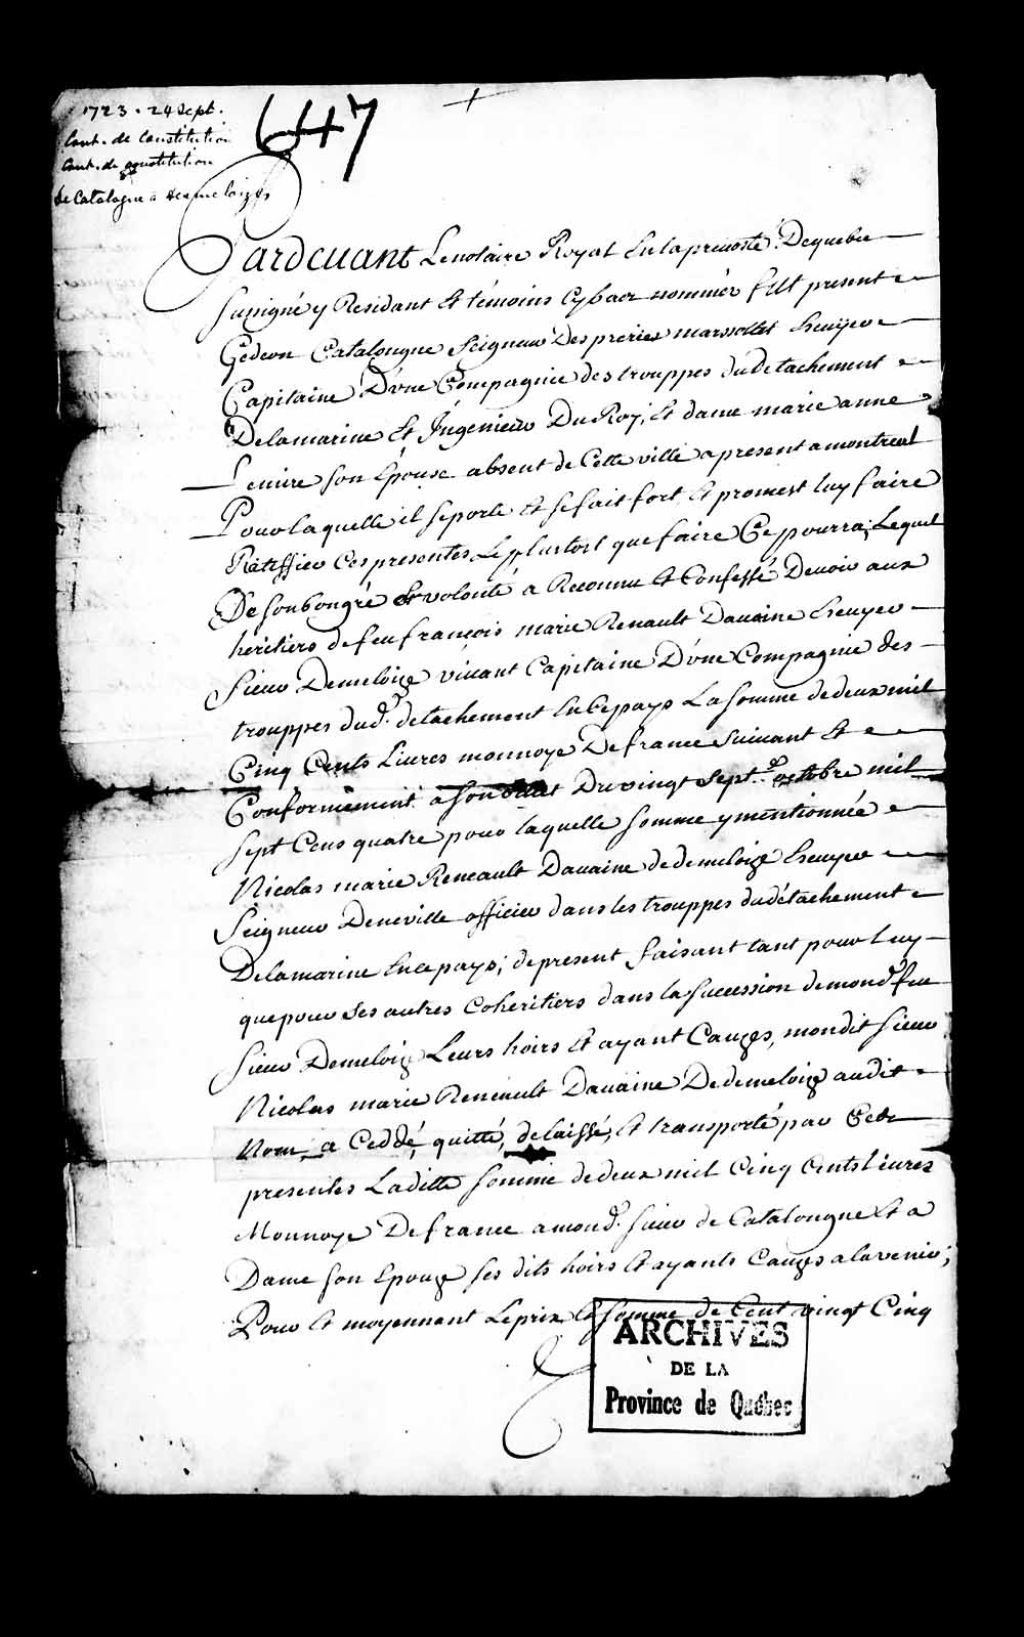 1723 - 24 Sept.
Cont. de Constitution
Cont. de constitution
de Catalogne a demeloizes
647
Pardevant Le notaire Royal En la prevosté De quebec
Susigné y Residant Et témoins Cybas nommés fut present
Gedeon Catalougne Seigneur Des preries marsollet Escuyer
Capitaine D'vne Compagnie des trouppes du detachement
De la marine Et Ingenieur Du Roy, Et dame marie anne
Lemire son Epouse absent de Cette ville a present a montreal
Pour laquelle il se porte Et se fait fort Et promest luy faire
Ratiffier Ces presentes Le plustost que faire Ce pourra, Lequel
De son bon gré Et volonté a Reconnu Et Confessé Devoir aux
heritiers de feu francois marie Renault Davaine Escuyer
Sieur Demeloize vivant Capitaine D'vne Compagnie des
trouppes dud. detachement En Ce pays La somme de deux mil
Cinq Cents Livres monnoye De france Suivant Et
Conformément a son billet Du vingt Sept.e octobre mil
sept Cens quatre pour laquelle somme y mentionnée
Nicolas marie Reneault Davaine de demeloize Escuyer
Seigneur Deneville officier dans les trouppes du détachement
De la marine En ce pays; de present faisant tant pour Luy
que pour ses autres Coheritiers dans la succession de mond. feu
Sieur Demeloize Leurs hoirs Et ayant Cauzes, mondit Sieur
Nicolas marie Reneault Davaine De demeloize audit
Nom, a Ceddé, quitté, delaissé, Et transporté par Ces
presentes Laditte somme de deux mil Cinq Cents Livres
Monnoye De france a mond. sieur de Catalougne Et a
Dame son Epouze ses dits hoirs Et ayants Cauzes a lavenir;
Pour Et moyennant Le prix Et somme de Cent vingt Cinq
ARCHIVES
DE LA
Province de Québec